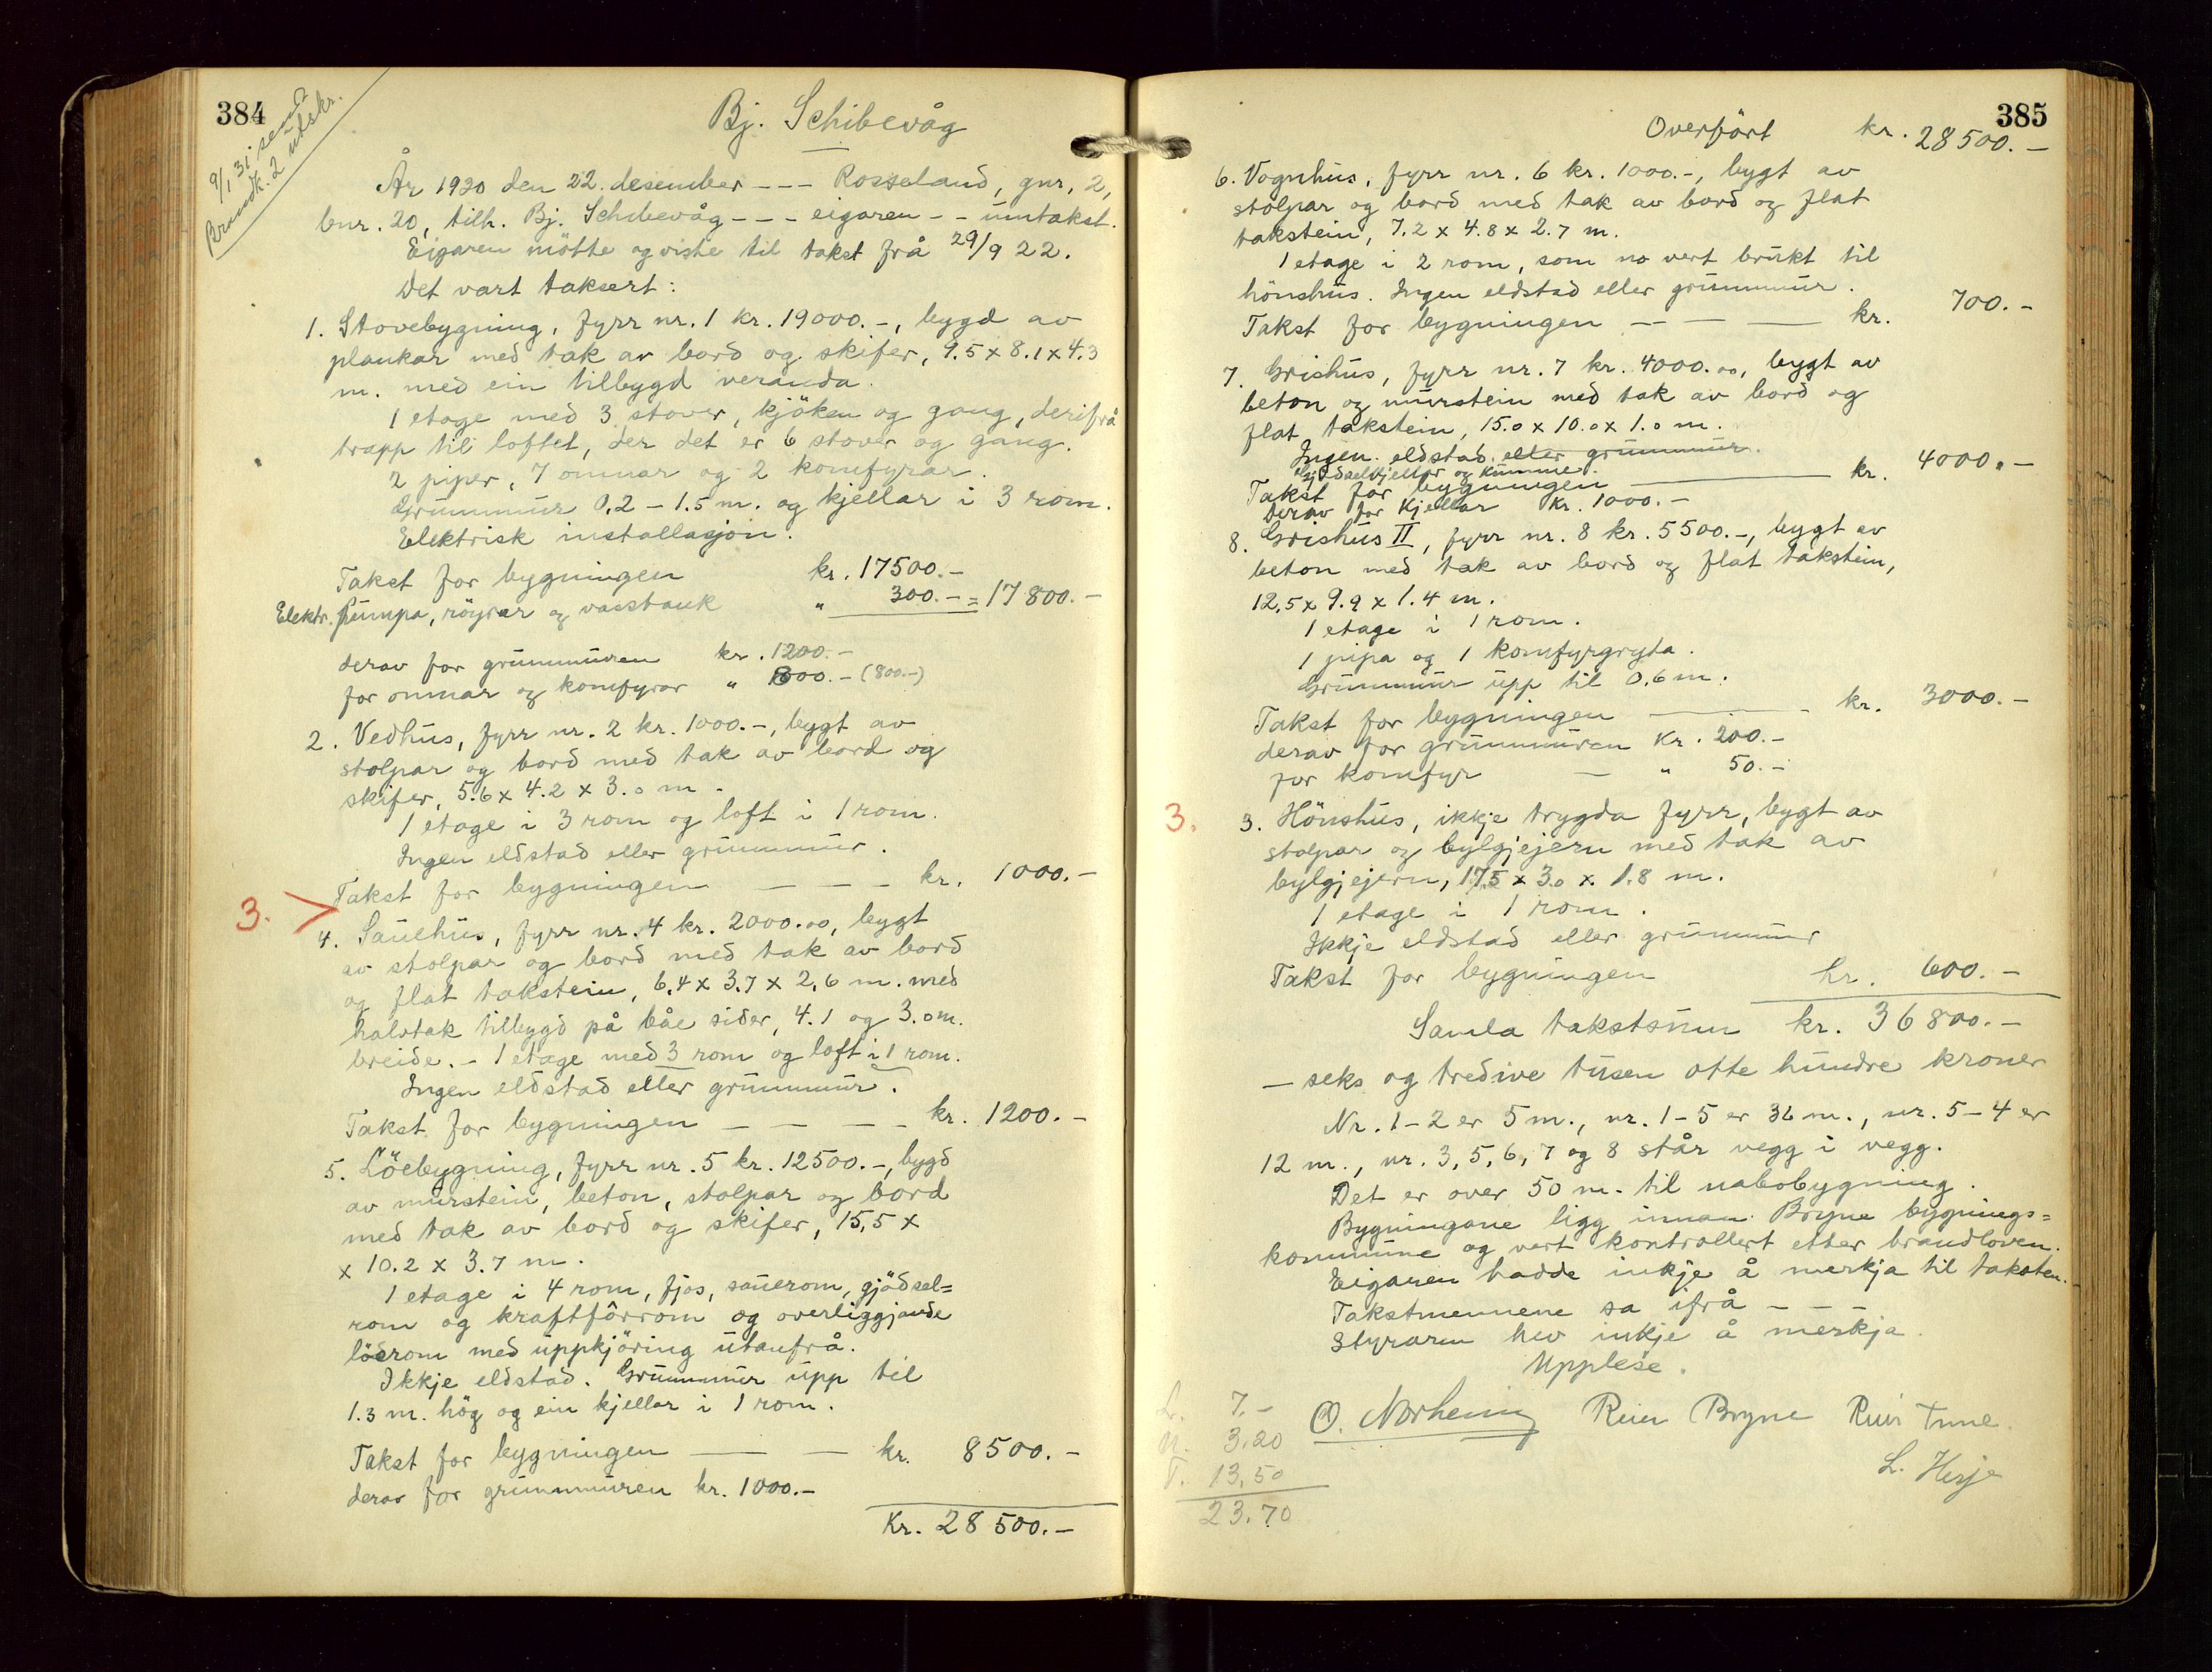 384
9/1 31 sendt
Brandk. 2 utskr.
Bj. Schibevåg
År 1930 den 22. desember - - - Rosseland, gnr. 2,
bnr. 20, tilh. Bj. Schibevåg - - - eigaren - - umtakst.
Eigaren møtte og viste til takst frå 29/9 22.
Det vart taksert:
1. Stovebygning, fyrr nr. 1 kr. 19000.-, bygd av
plankar med tak av bord og skifer, 9.5 x 8.1 x 4.3
m. med ein tilbygd veranda.
1 etage med 3 stover, kjöken og gang, derifrå
trapp til loftet, der det er 6 stover og gang.
2 piper, 7 omnar og 2 komfyrar.
Grunnmur 0.2 - 1.5 m. og kjellar i 3 rom.
Elektrisk installasjon.
Takst for bygningen kr. 17500.-
Elektr. pumpa, röyrar og vasstank " 300.- = 17800.-
derav for grunnmuren kr. 1200.-
for omnar og komfyrar " 800.- (800.-)
2. Vedhus, fyrr nr. 2 kr. 1000.-, bygt av
stolpar og bord med tak av bord og
skifer, 5.6 x 4.2 x 3.0 m.
1 etage i 3 rom og loft i 1 rom.
Ingen eldstad eller grunnmur.
Takst for bygningen - - - kr. 1000.-
3. >
4. Sauehus, fyrr nr. 4 kr. 2000.00, bygt
av stolpar og bord med tak av bord
og flat takstein, 6.4 x 3.7 x 2.6 m. med
halvtak tilbygd på båe sider, 4.1 og 3.0 m.
breide. - 1 etage med 3 rom og loft i 1 rom.
Ingen eldstad eller grunnmur.
Takst for bygningen - - - - kr. 1200.-
5. Löebygning, fyrr nr. 5 kr. 12500.-, bygd
av murstein, beton, stolpar og bord
med tak av bord og skifer, 15,5 x
x 10.2 x 3.7 m.
1 etage i 4 rom, fjos, sauerom, gjödsel=
rom og kraftfôrrom og overliggjande
löerom med uppkjöring utanfrå.
Ikkje eldstad. Grunnmur upp til
1.3 m. høg og ein kjellar i 1 rom.
Takst for bygningen — — kr. 8500.-
derav for grunnmuren kr. 1000.-
Kr. 28500.-
385
Overfört kr. 28500.-
6. Vognhus, fyrr nr. 6 kr. 1000.-, bygt av
stolpar og bord med tak av bord og flat
takstein, 7.2 x 4.8 x 2.7 m.
1 etage i 2 rom, som no vert brukt til
hönshus. Ingen eldstad eller grunnmur.
Takst for bygningen — — — kr. 700.-
7. Grishus, fyrr nr. 7 kr. 4000.00, bygt av
beton og murstein med tak av bord og
flat takstein, 15.0 x 10.0 x 1.0 m.
Ingen eldstad eller grunnmur.
Gjödselkjellar og kumme.
Takst for bygningen — kr. 4000.-
Derav for kjellar kr. 1000.-
8. Grishus II, fyrr nr. 8 kr. 5500.-, bygt av
beton med tak av bord og flat takstein,
12.5 x 9.9 x 1.4 m.
1 etage i 1 rom.
1 pipa og 1 komfyrgryta.
Grunnmur upp til 0.6 m.
Takst for bygningen — - kr. 3000.-
derav for grunnmuren kr. 200.-
for komfyr — " 50.-
3. 3. Hönshus, ikkje trygda fyrr, bygt av
stolpar og bylgjejern med tak av
bylgjejern, 17.5 x 3.0 x 1.8 m.
1 etage i 1 rom.
Ikkje eldstad eller grunnmur
Takst for bygningen kr. 600.-
Samla takstsum kr. 36800.-
- seks og tredive tusen otte hundre kroner
Nr. 1-2 er 5 m., nr. 1-5 er 36 m., nr. 5-4 er
12 m., nr. 3, 5, 6, 7 og 8 står vegg i vegg.
Det er over 50 m. til nabobygning.
Bygningane ligg innan Bryne bygnings=
kommune og vert kontrollert etter brandloven.
Eigaren hadde inkje å merkja til taksten.
Takstmennene sa ifrå - - -
Styraren hev inkje å merkja.
Upplese.
O. Norheim Reier Bryne Reier Tune.
L. Herje
L. 7.-
U. 3,20
T. 13,50
23.70